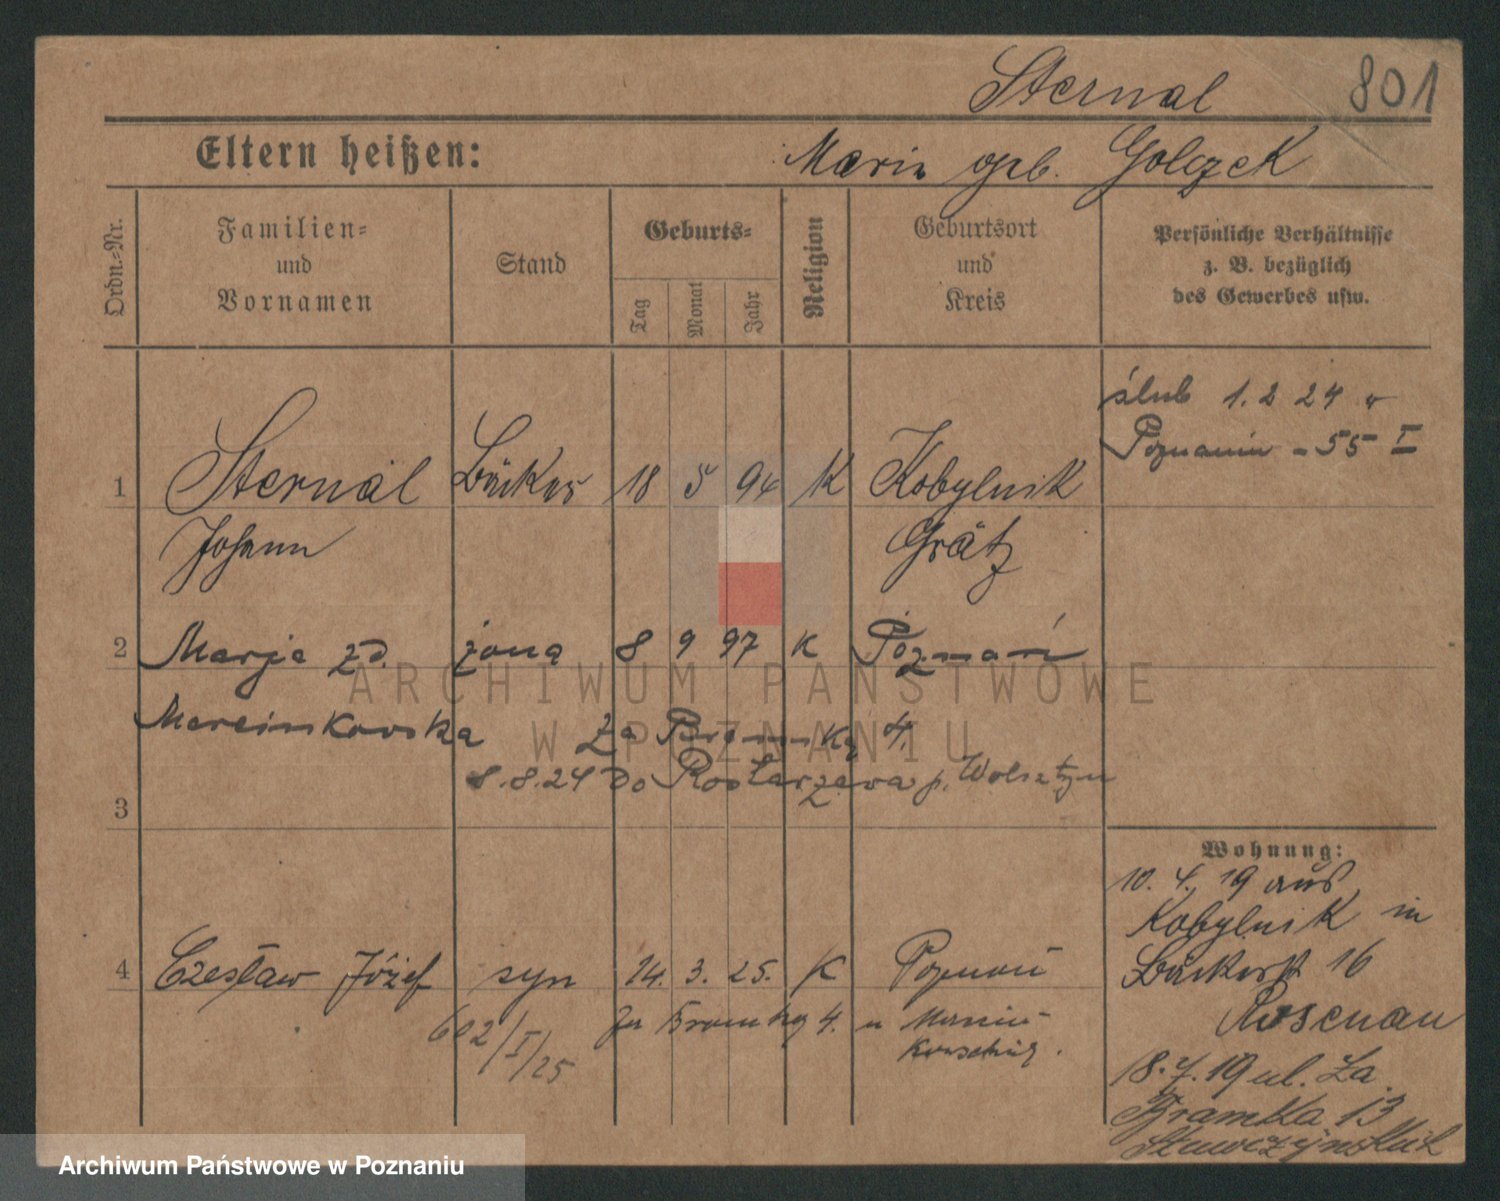 Sternal 801
Eltern heißen: Maria geb. Golczek
Ordn.-Nr.
Familien-
und
Vornamen
Stand
Geburts-
Tag
Monat
Jahr
Religion
Geburtsort
und
Kreis
Persönliche Verhältnisse
z. B. bezüglich
des Gewerbes usw.
ślub 1.2 24 w
Poznaniu - 55 I
1 Sternal Bäcker 18 5 94 K Kobylnik
Johann Grätz
2 Marja zd. żona 8 9 97 K Poznań
ARCHIWUM PAŃSTWOWE
W POZNANIU
Marcinkowska Za Bramką 4.
8.8.24 do Rostarzewa p. Wolsztyn
3
4 Czesław Józef syn 14. 3. 25. K Poznań
602/I/25 Za Bramką 4. u
Wohnung:
10. 4. 19 aus
Kobylnik in
Bäckerst 16
Rosenau
18.7.19 ul. Za
Bramka 13
Archiwum Państwowe w Poznaniu